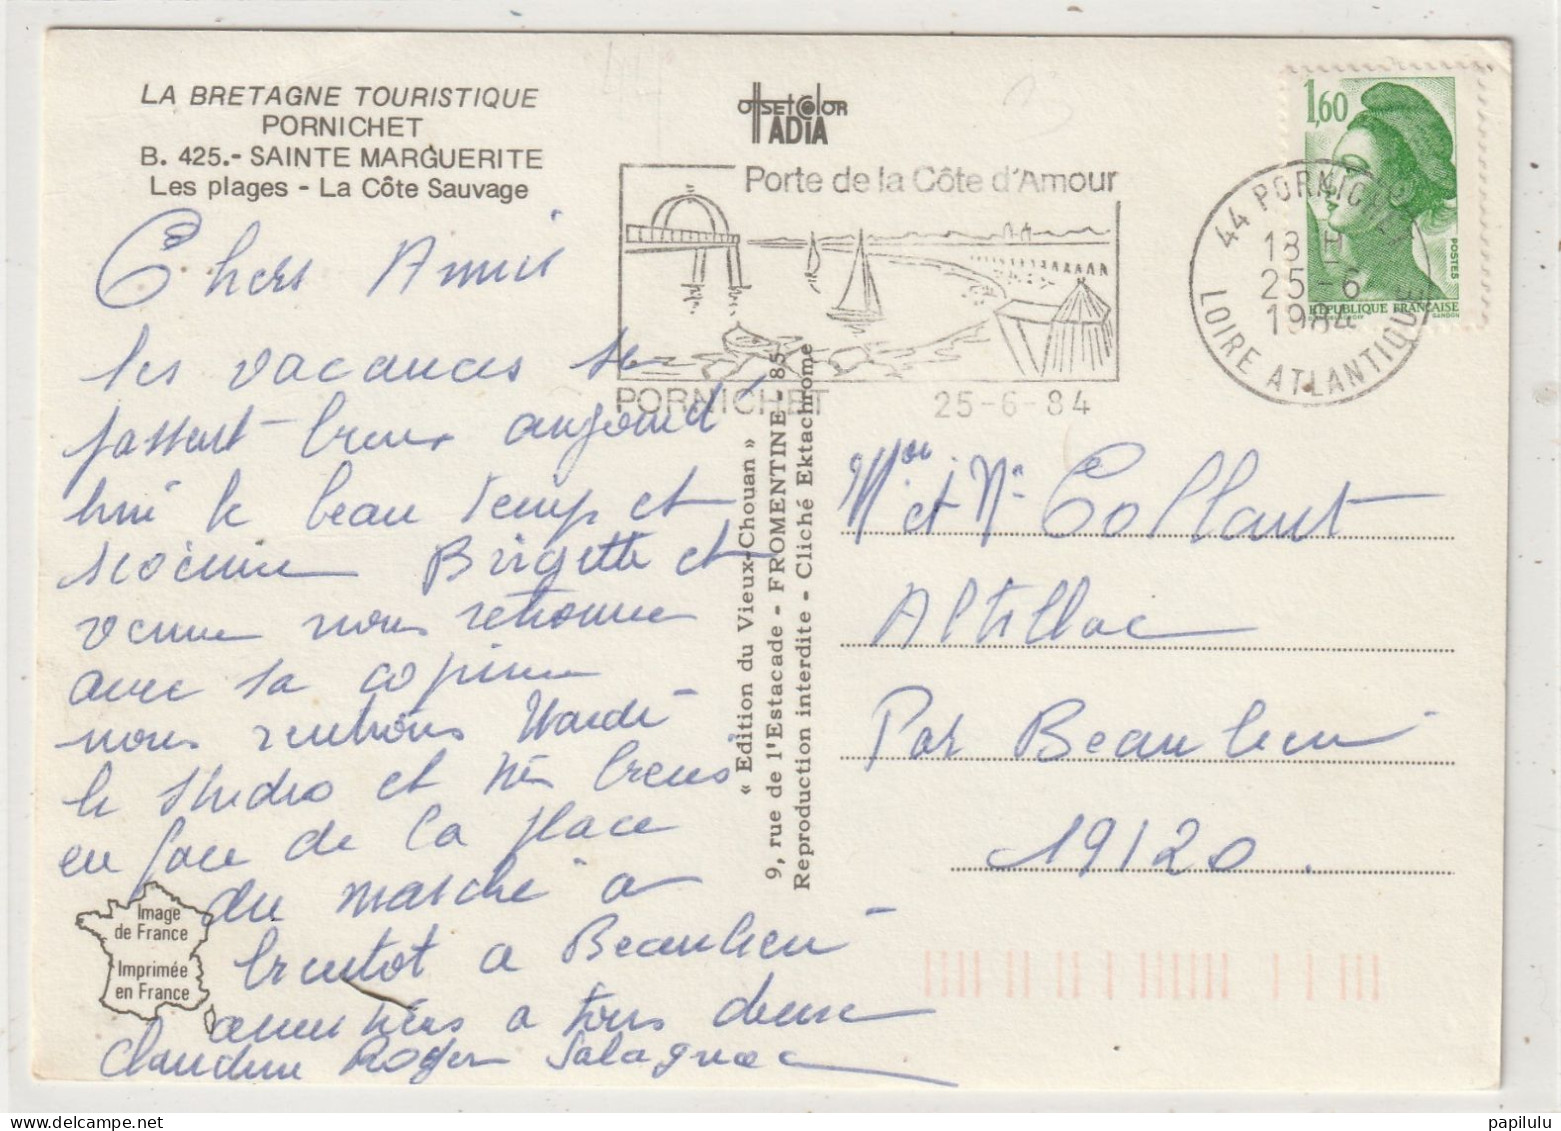 LA BRETAGNE TOURISTIQUE
PORNICHET
B. 425.- SAINTE MARGUERITE
Les plages - La Côte Sauvage
OffSETCOlOR
ADIA
Porte de la Côte d'Amour
PORNICHET 25-6-84
1,60
POSTES
REPUBLIQUE FRANÇAISE
GANDON
44 PORNICHET
18 H
25-6
1984
LOIRE ATLANTIQUE
Chers Amis
les vacances se
passent bien aujourd'
hui le beau temps et
Brigitte et
nous
avec sa copine
nous rentrons Mardi
le studio et très bien
en face de la place
du marché a
bientot a Beaulieu
a tous deux
Claudine Roger Salagnac
« Edition du Vieux-Chouan »
9, rue de l'Estacade - FROMENTINE - 85
Reproduction interdite - Cliché Ektachrome
et Collant
Altillac
Par Beaulieu
19120.
Image
de France
Imprimée
en France
papilulu